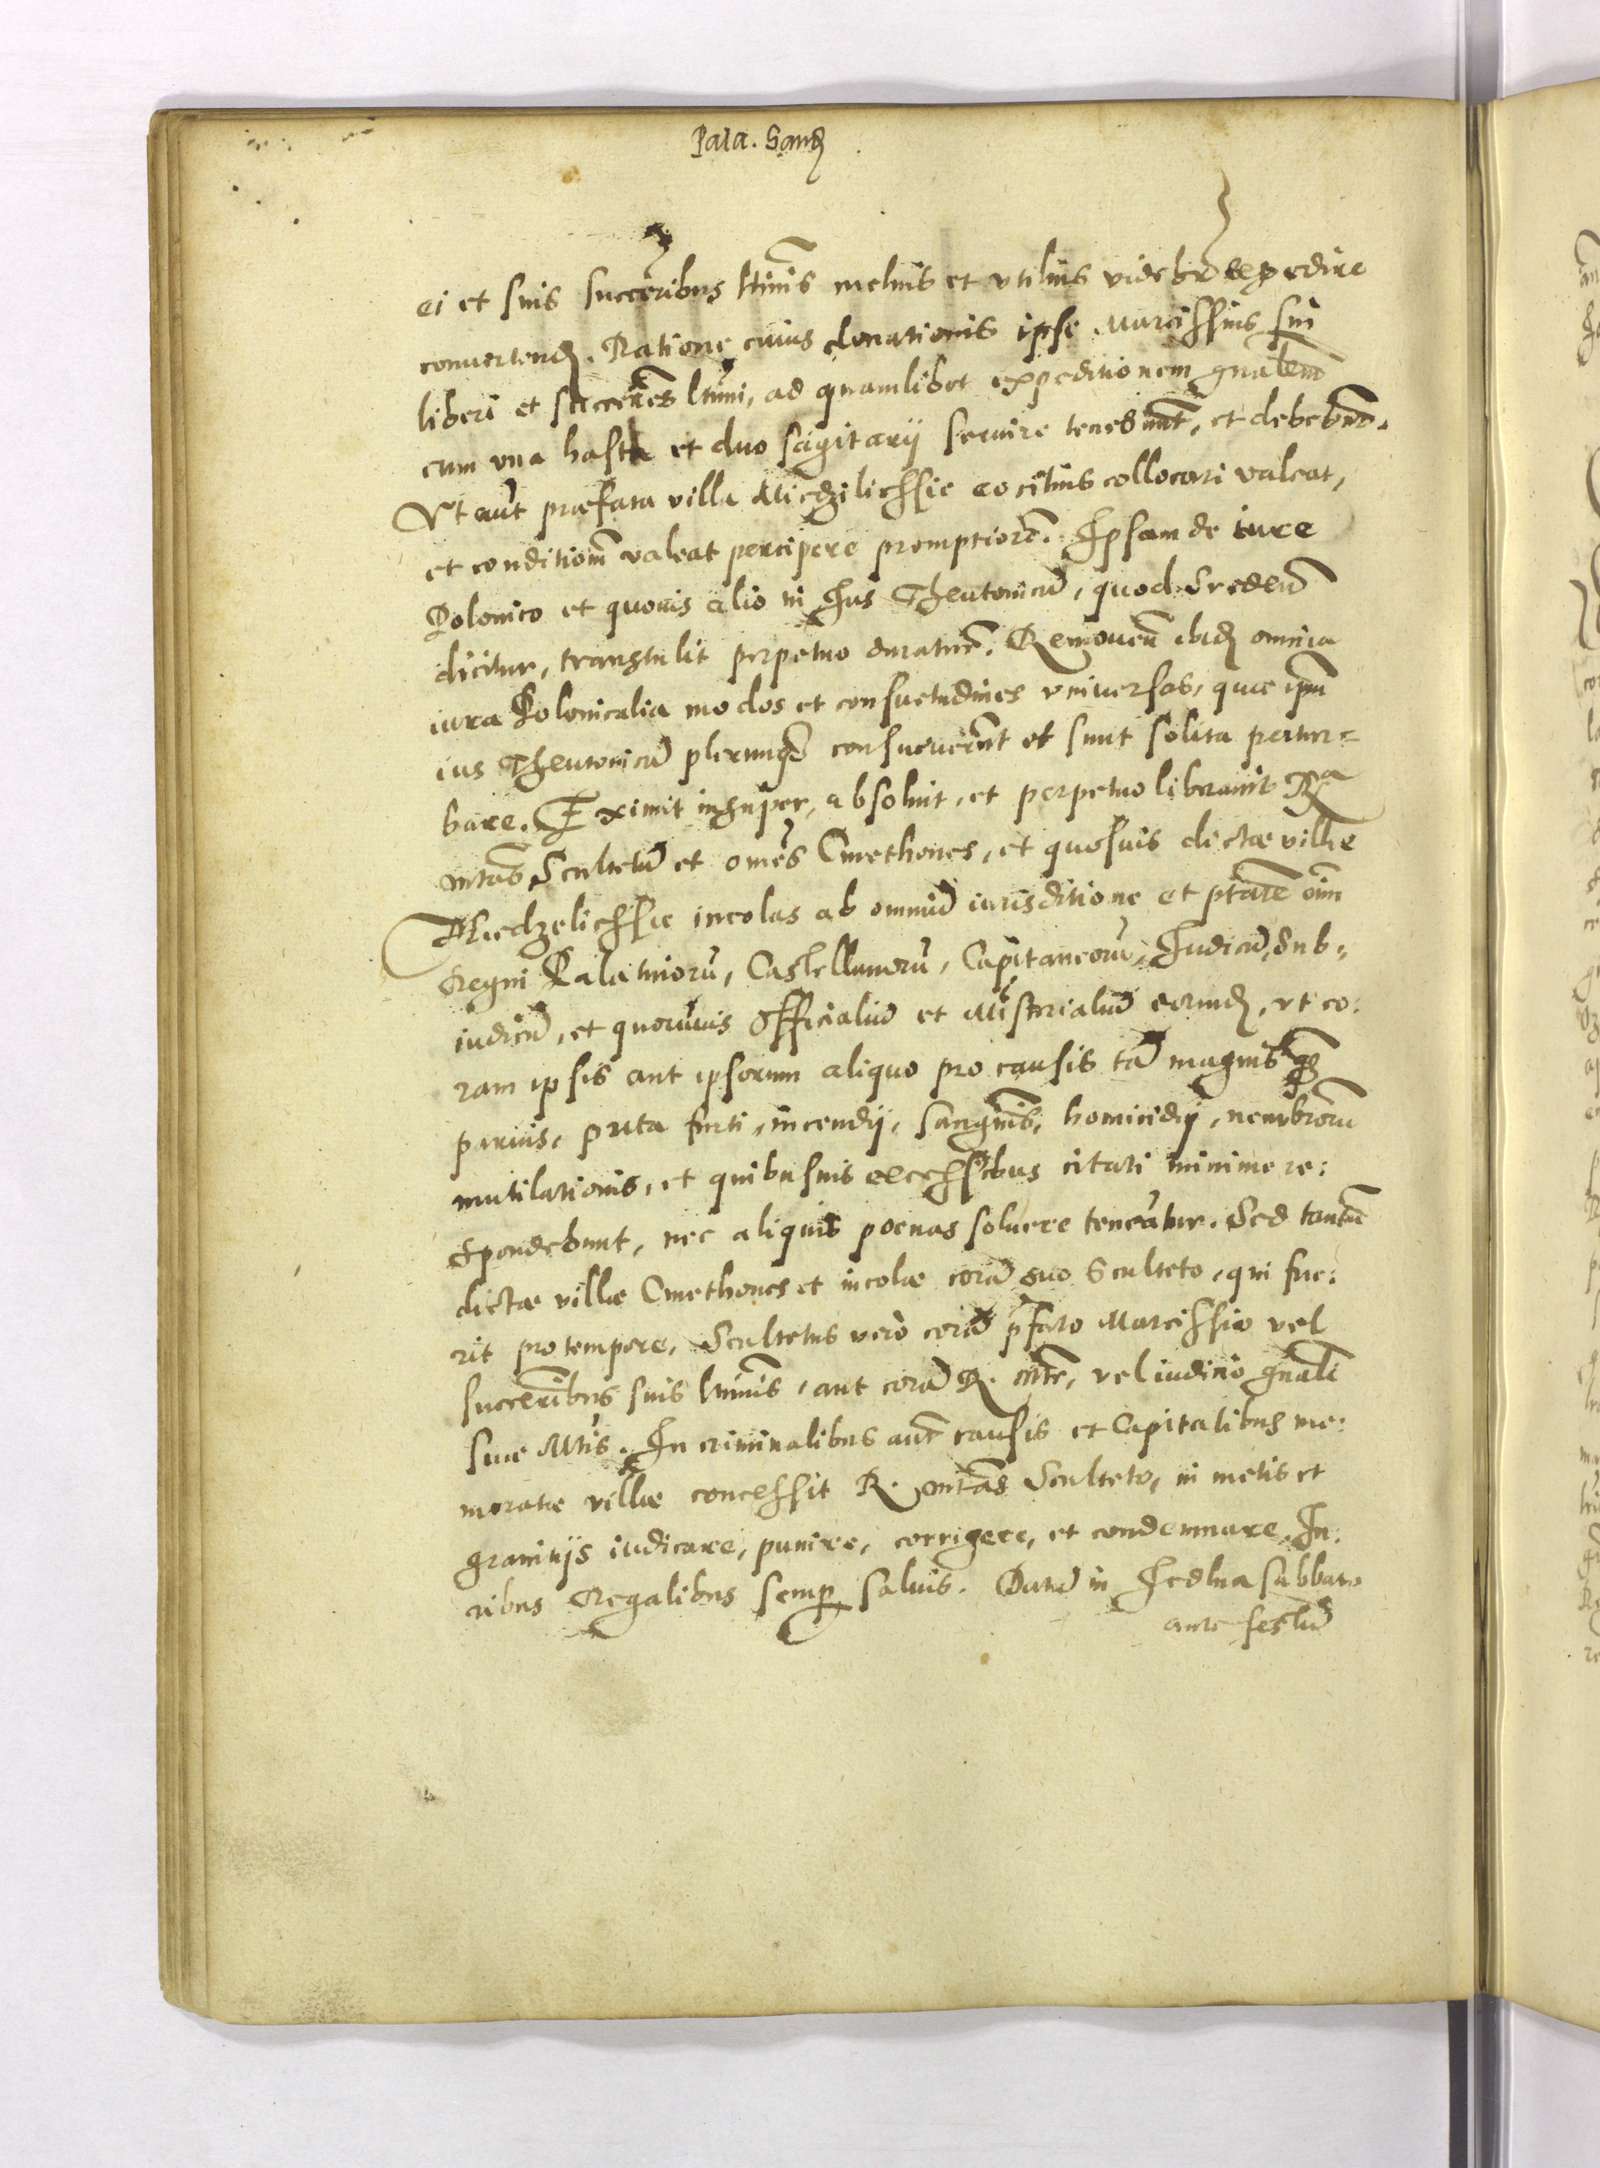 Pala. Sand
ei et suis successoribus ltimis melius et vtilius videbr expedire
conuertend. Ratione cuius donationis ipse Marcissius sui
liberi et succeres ltimi, ad quamlibet expeditionem gnalem
cum vna hasta et duo sagitarij seruire tenebunt, et debebunt.
Vt aut præfata villa Miedziliessie eo citius collocari valeat,
et conditionem valeat percipere promptiore. Ipsam de iure
Polonico et quouis alio in Ius Theutonicu, quod Sredense
dicitur, transtulit perpetuo duratur. Remouen ibid omnia
iura Polonicalia modos et consuetudines vniuersas, quæ ipm
ius Theutonicu plerunq consueuerunt et sunt solita pertur=
bare. Eximit insuper, absoluit, et perpetuo liberauit Ra
mtas Scultetu et omes Cmethones, et quosuis dictæ villæ
Miedzeliessie incolas ab omniu iurisditione et ptate oim
Regni Palatinoru, Castellanoru, Capitaneoru, Iudicu, Sub=
iudicu, et quoruuis Officialiu et Misterialiu eorund, vt co:
ram ipsis aut ipsorum aliquo pro causis ta magnis q
paruis, puta furti, incendij, sanguinis, homicidij, membroru
mutilationis, et quibusuis excessibus citati minime re:
spondebunt, nec aliquis poenas soluere teneatur. Sed tantu
dictæ villæ Cmethones et incolæ cora suo Sculteto, qui fue:
rit pro tempore, Scultetus vero cora pfato Marcissio vel
succeribus suis ltimis, aut cora R. mte, vel iudicio gnali
siue Mtis. In criminalibus aut causis et Capitalibus me:
moratæ villæ concessit R. mtas Sculteto, in metis et
granicijs iudicare, punire, corrigere, et condemnare. Iu:
ribus Regalibus semp saluis. Datu in Iedlna sabbato
ante festu